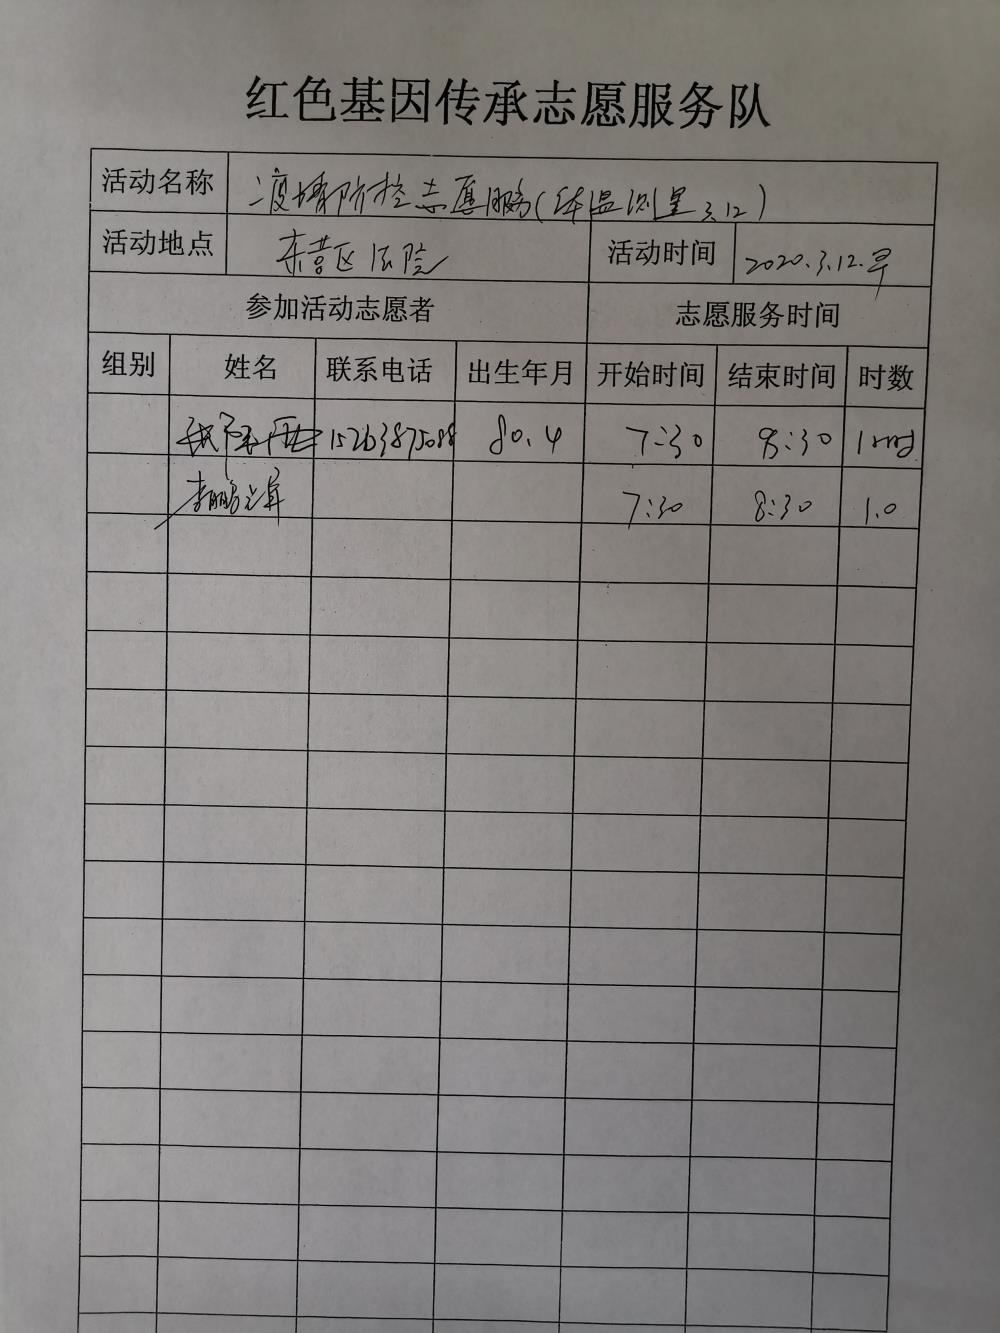 红色基因传承志愿服务队
活动名称 疫情防控志愿服务(体温测量3.12)
活动地点 东营区法院 活动时间 2020.3.12.早
参加活动志愿者 志愿服务时间
组别 姓名 联系电话 出生年月 开始时间 结束时间 时数
80.4 7:30 8:30 1小时
7:30 8:30 1.0